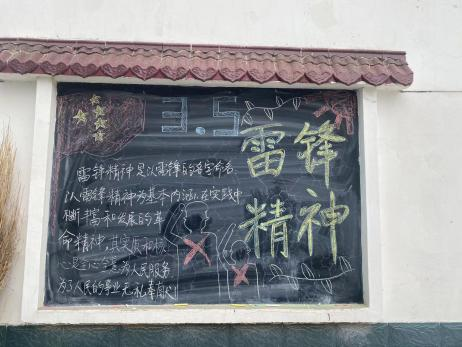 3.5
雷锋
精神
雷锋精神是以雷锋的名字命名,
以雷锋精神为基本内涵,在实践中
不断丰富和发展的革
命精神,其实质和核
心是全心全意为人民服务
为了人民的事业无私奉献